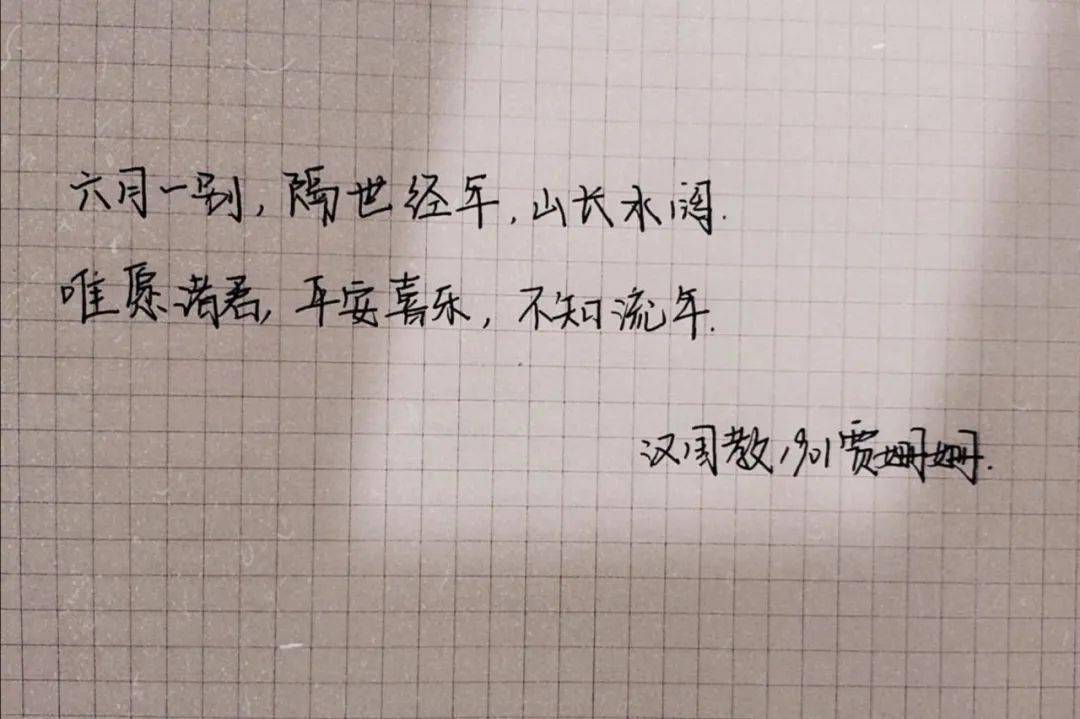 六月一别,隔世经年,山长水阔.
唯愿诸君,平安喜乐,不知流年.
汉国教1901贾姗姗.